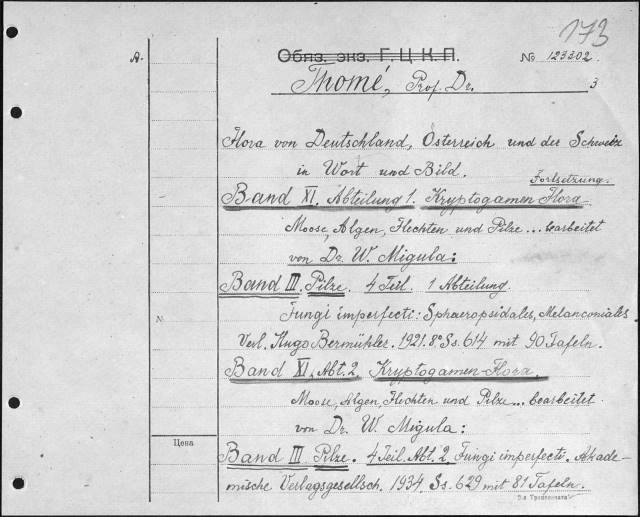 173
А.
Обяз. экз. Г. Ц. К. П.
№ 123302
Thomé, Prof. Dr. 3
Flora von Deutschland, Österreich und der Schweiz
in Wort und Bild.
Fortsetzung.
Band XI. Abteilung 1. Kryptogamen Flora
Moose, Algen, Flechten und Pilze... bearbeitet
von Dr. W. Migula:
Band III. Pilze. 4 Teil. 1 Abteilung.
Fungi imperfecti: Sphaeropsidales, Melanconiales
№
Verl. Hugo Bermühler. 1921. 8° Ss. 614 mit 90 Tafeln.
Band XI, Abt. 2. Kryptogamen-Flora.
Moose, Algen, Flechten und Pilze... bearbeitet
von Dr. W. Migula:
Цена
Band III Pilze. 4 Teil. Abt. 2. Fungi imperfecti. Akade-
mische Verlagsgesellsch. 1934. Ss. 629 mit 81 Tafeln.